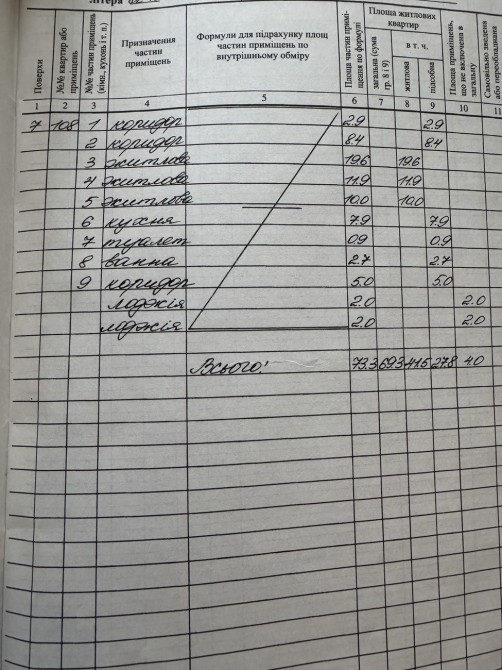 літера
Поверхи
№№ квартир або приміщень
№№ частин приміщень (кімн., кухонь і т. п.)
Призначення частин приміщень
Формули для підрахунку площ частин приміщень по внутрішньому обміру
Площа частин приміщення по формулі
Площа житлових квартир
загальна (сума гр. 8 і 9)
в т. ч.
житлова
підсобна
Площа приміщень, що не включена в загальну
Самовільно зведена або переобладнана
1 2 3 4 5 6 7 8 9 10 11
7 108 1 коридор 2.9 2.9
2 коридор 8.4 8.4
3 житлова 19.6 19.6
4 житлова 11.9 11.9
5 житлова 10.0 10.0
6 кухня 7.9 7.9
7 туалет 0.9 0.9
8 ванна 2.7 2.7
9 коридор 5.0 5.0
лоджія 2.0 2.0
лоджія 2.0 2.0
Всього: 73.3 69.3 41.5 27.8 4.0